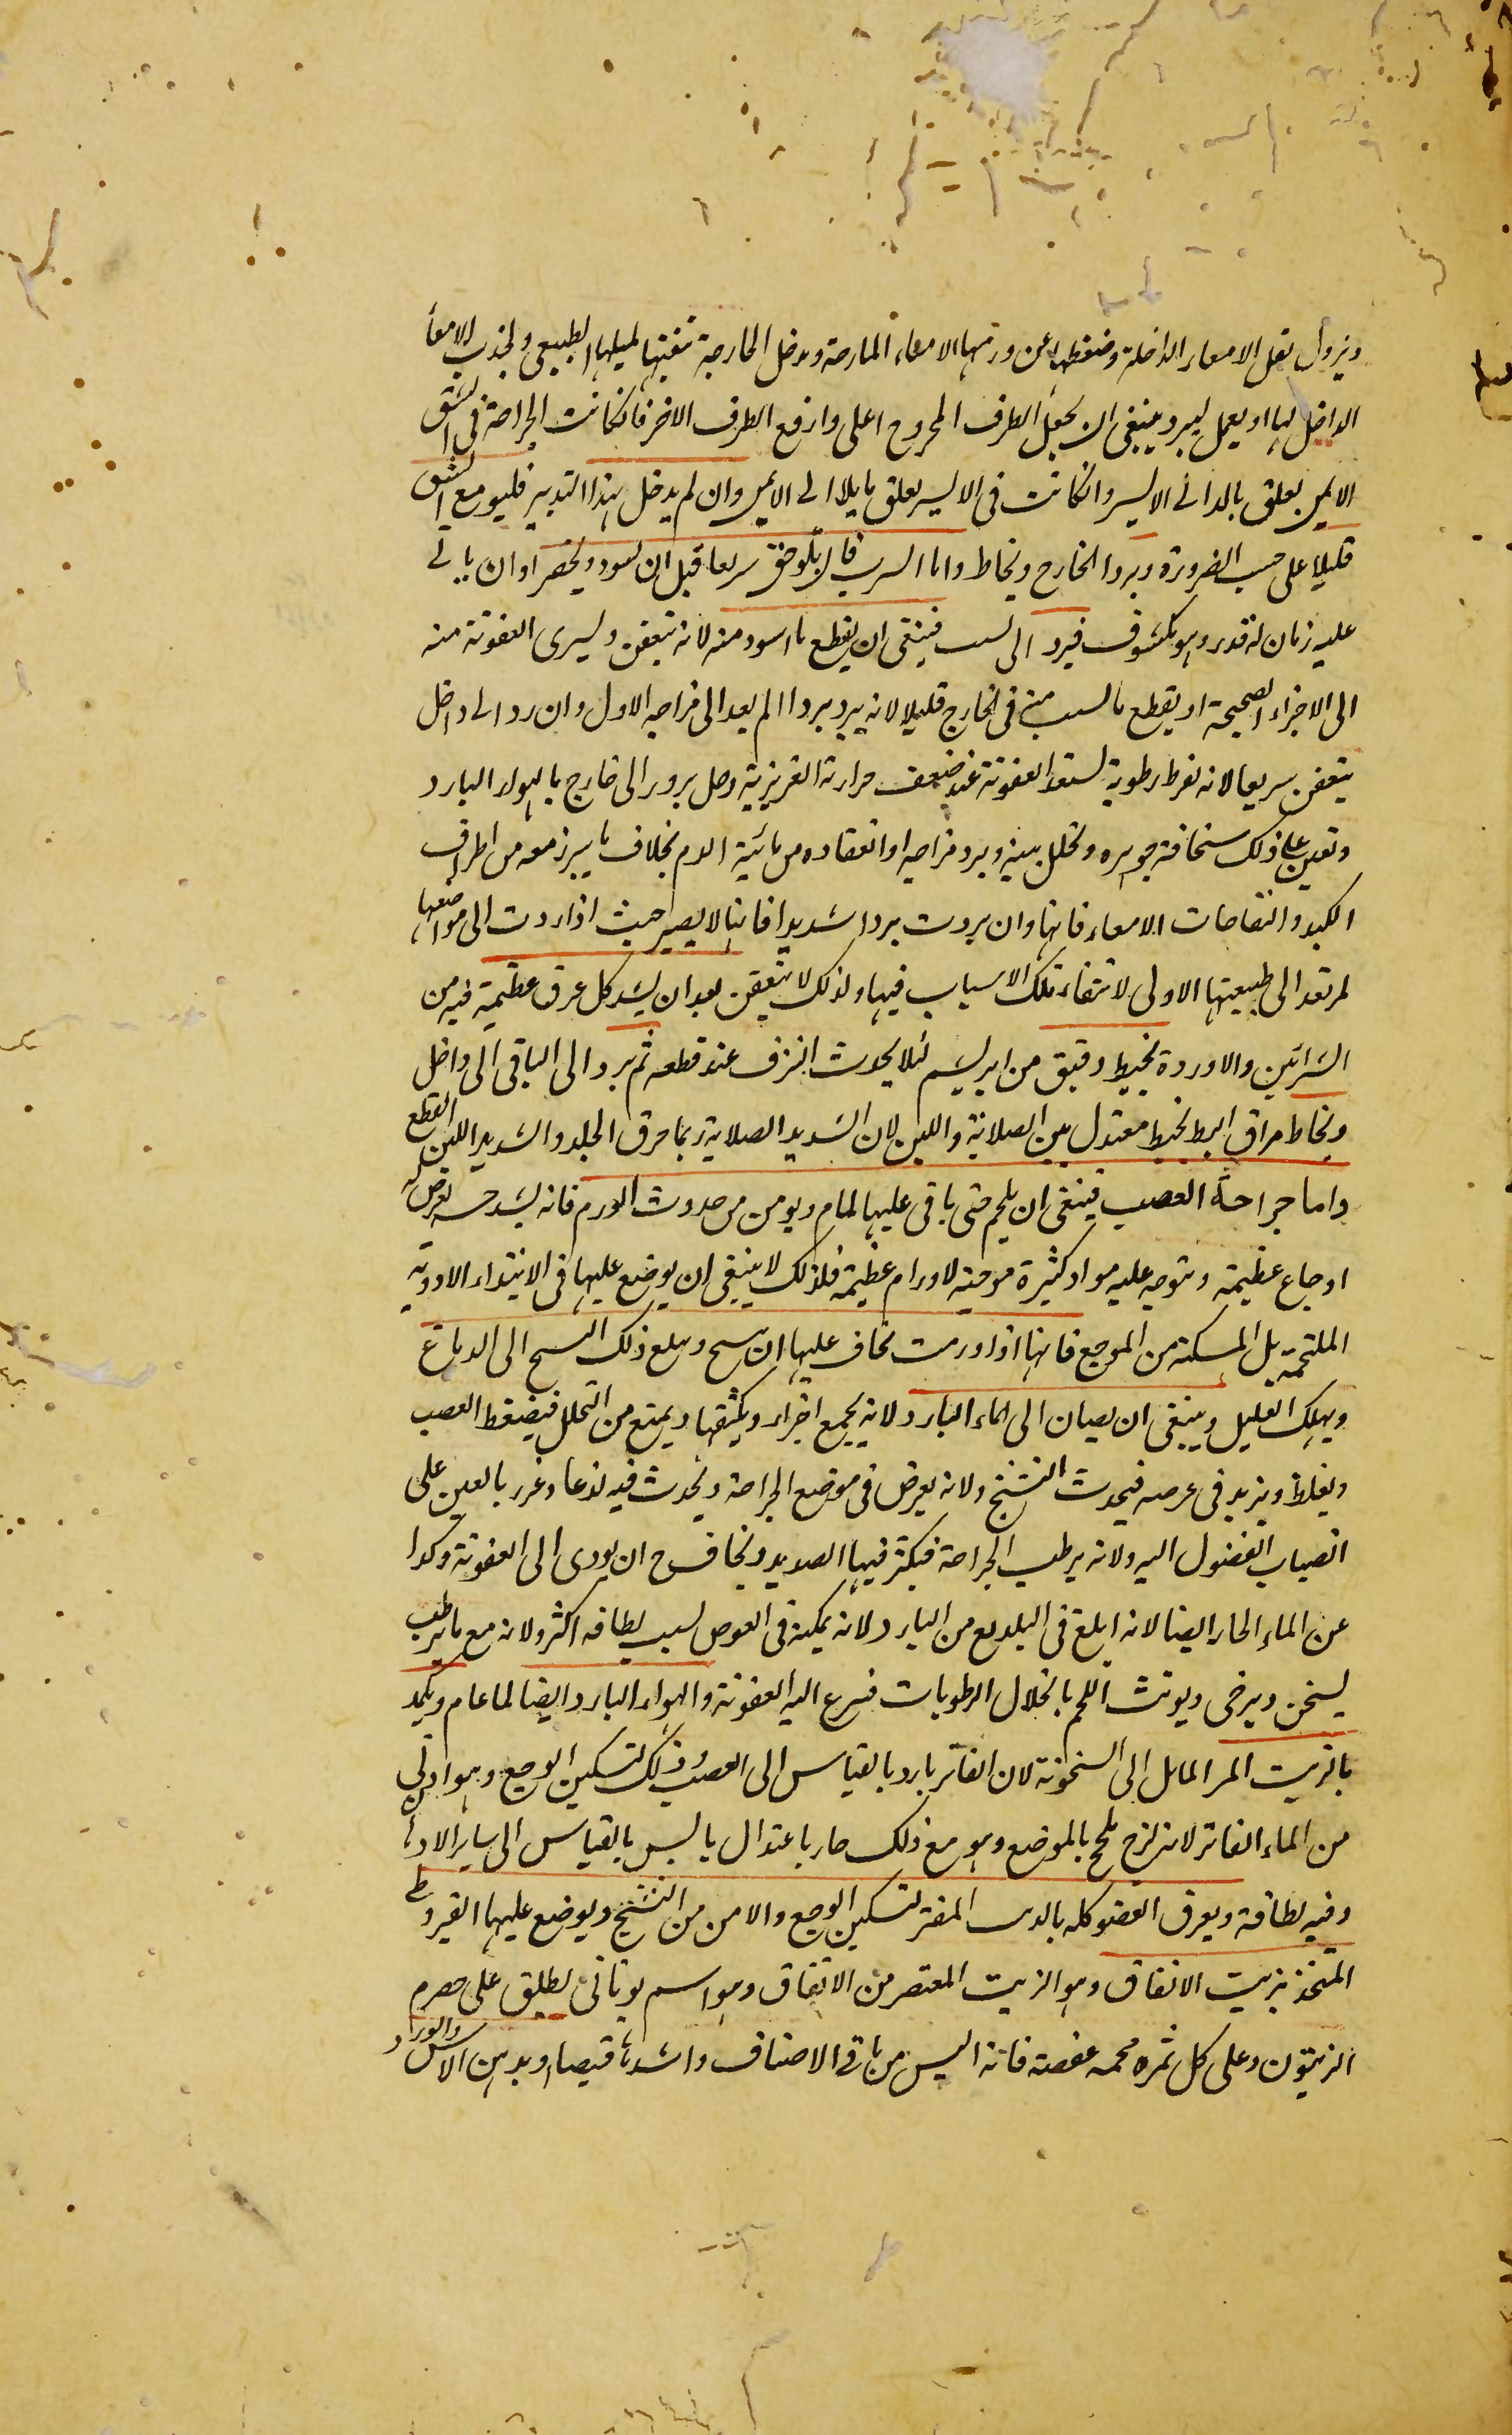 ويزول ثقل الامعاء الداخلة وضغطها عن ورمها الامعاء الخارجة ويدخل الخارجة بنفسها لميلها الطبيعى ولجذب الامعأ
الداخل لها او يعمل ليبرد وينبغى ان يجعل الطرف المجروح اعلى وارفع الطرف الاخر فانكانت الجراحة فى الشق
الايمن يعلق بالدانى الايسر وانكانت فى الايسر يعلق مايلا الى الايمن وان لم يدخل بهذا التدبير فليوسع الشق
قليلا على حسب الضرورة ويردا الخارج ويخاط واما الثرب فان لوحق سريعا قبل ان يسود ويخضر او ان ياتى
عليه زمان له قدر وهو مكشوف فيرد الى فينبغى ان يقطع ما اسود منه لانه يتعفن ويسرى العفونة منه
الى الاجزاء الصحيحة او يقطع ما لبث منه فى الخارج قليلا لانه يبرد بردا لم يعد الى مزاجه الاول وان رد الى داخل
يتعفن سريعا لانه لفرط رطوبة يستعد العفونة عند ضعف حرارته الغريزية وصل بروز الى خارج بالهواء البارد
وتعين على ذلك سخافة جوهره وتخلل بينه وبرد مزاجه وانعقاده من مائية الدم بخلاف ما يبرز معه من اطراف
الكبد والتفافات الامعاء فانها وان بردت بردا شديدا فانها لا يصير حيث اذا ردت الى مواضعها
لم تعد الى طبيعتها الاولى لانتفاء تلك الاسباب فيها ولذلك لا يتعفن بعد ان يشد كل عرق عظيمة فيه من
الشرائين والاوردة بخيط دقيق من ابريشم لئلا يحدث النزف عند قطعه ثم يرد الى الباقى الى داخل
ويخاط مراق البط بخيط معتدل بين الصلابة واللين لان الشديد الصلابة ربما خرق الجلد والشديد اللين القطع
واما جراحة العصب فينبغى ان يلحم حتى ياتى عليها لمام ويومن من حدوث الورم فانه يشد حسه يعرض له
اوجاع عظيمة وتتوجه عليه مواد كثيرة موجبة لاورام عظيمة فلذلك لا ينبغى ان يوضع عليها فى الابتداء الادوية
الملتحمة بل المسكنة من الموجع فانها اذا ورمت تخاف عليها ان يتشنج ويبلغ ذلك التشنج الى الدماغ
ويهلك العليل وينبغى ان يصان الى الماء البارد لانه يجمع اجزاء ويكثفها ويمنع من التحلل فيضغط العصب
ويغلظ ويزيد فى عرضه فيحدث التشنج ولانه يعرض فى موضع الجراحة ويحدث فيه لذعا وغرز بالعين على
انصباب الفضول اليه ولانه يرطب الجراحة فيكثر فيها الصديد ويخاف ح ان يودى الى العفونة وكذا
عن الماء الحار ايضا لانه ابلغ فى البلديع من البارد لانه يمكنه فى الغوص لسبب لطافه اكثر ولانه مع ما يرطب
يسخن ويرخى ويوثث اللحم بانحلال الرطوبات فيسرع اليه العفونة والهواء البارد ايضا لما عام ويكمد
بالزيت المر المايل الى السخونة لان الفاتر بارد بالقياس الى العصب وذلك لتسكين الوجع وهو اولى
من الماء الفاتر لانه لزج يلحح بالموضع وهو مع ذلك حار باعتدال يابس بالقياس الى ساير الادهان
وفيه لطافة ويعرق العضو كله بالدهن المفتر لتسكين الوجع والامن من التشنج ويوضع عليها القيروطى
المتخذ بزيت الانفاق وهو الزيت المعتصر من الانفاق وهو اسم يونانى يطلق على حصرم
الزيتون وعلى كل ثمره فجه عفصة فانه ايبس من باقى الاصناف واشدها قبضا وبدهن الآس والورد